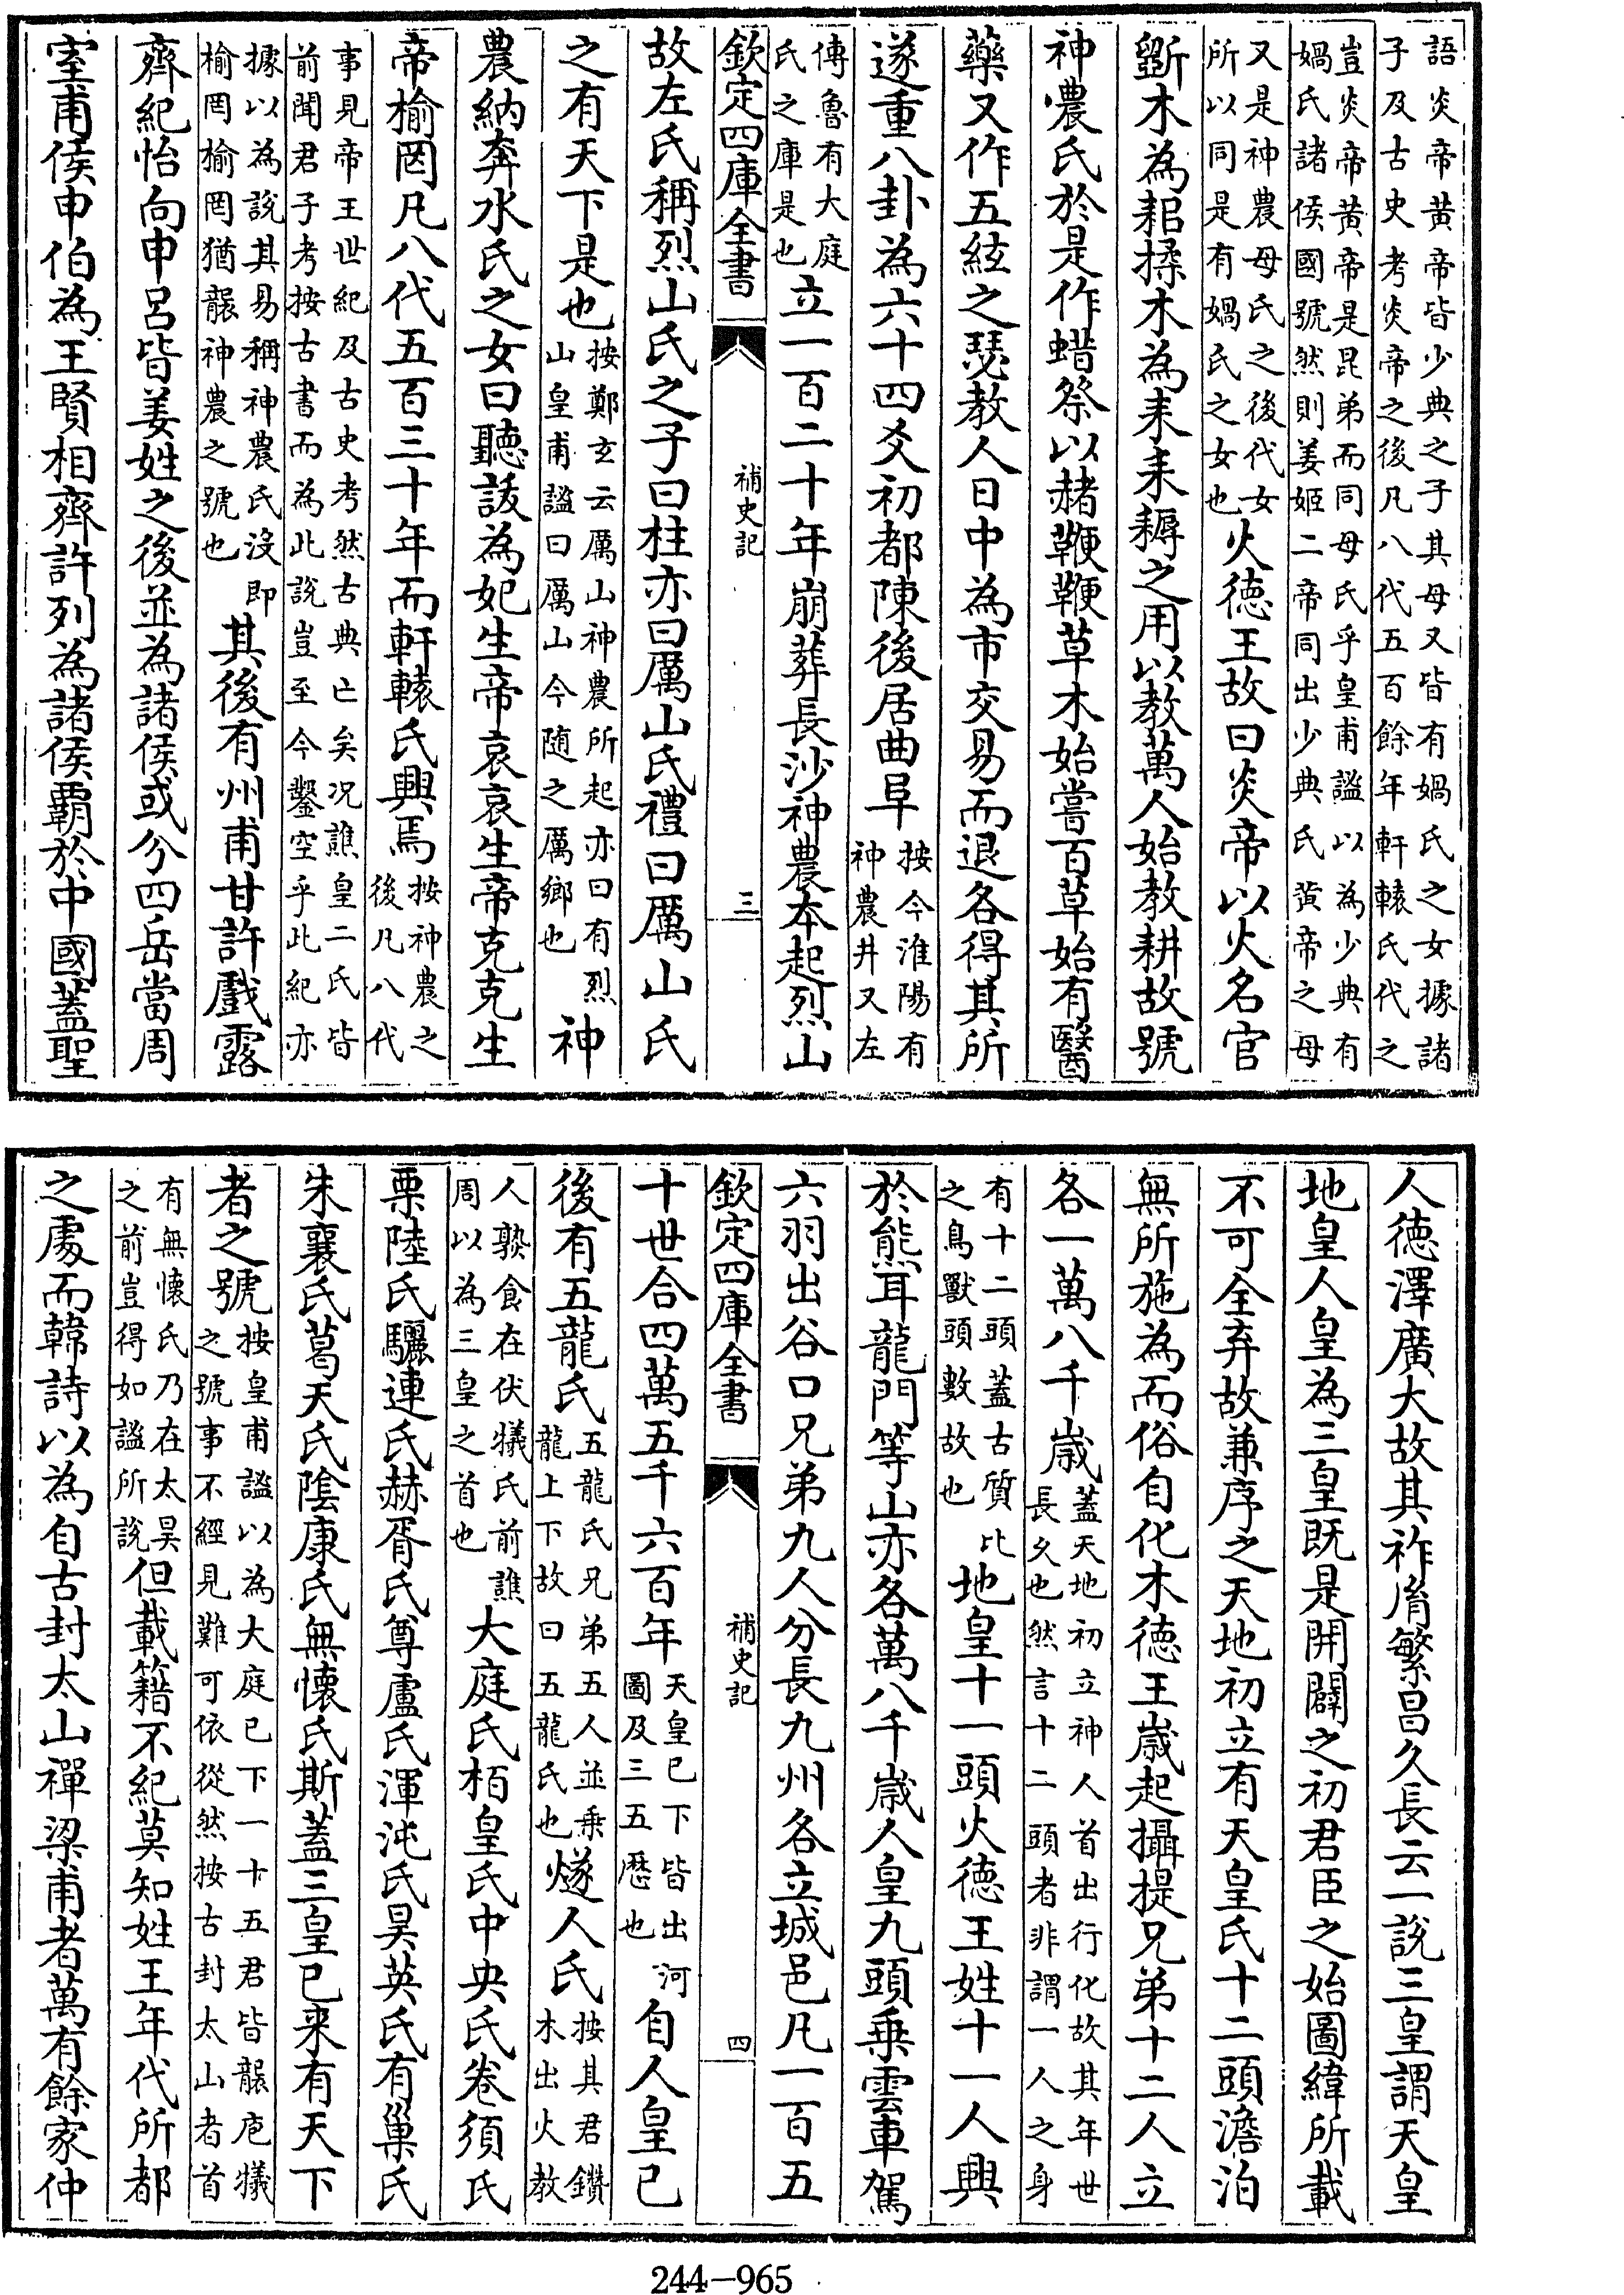 語炎帝黄帝皆少典之子其母又皆有媧氏之女據諸
子及古史考炎帝之後凡八代五百餘年軒轅氏代之
豈炎帝黄帝是昆弟而同母氏乎皇甫謐以為少典有
媧氏諸侯國號然則姜姬二帝同出少典氏黄帝之母
又是神農母氏之後代女
所以同是有媧氏之女也
火徳王故曰炎帝以火名官
斵木為耜揉木為耒耒耨之用以教萬人始教耕故號
神農氏於是作蜡祭以赭鞭鞭草木始嘗百草始有醫
藥又作五絃之瑟教人日中為市交易而退各得其所
遂重八卦為六十四爻初都陳後居曲阜
按今淮陽有
神農井又左
傳魯有大庭
氏之庫是也
立一百二十年崩葬長沙神農本起烈山
欽定四庫全書
補史記
三
故左氏稱烈山氏之子曰柱亦曰厲山氏禮曰厲山氏
之有天下是也
按鄭玄云厲山神農所起亦曰有烈
山皇甫謐曰厲山今随之厲鄉也
神
農納奔水氏之女曰聽詙為妃生帝哀哀生帝克克生
帝榆罔凡八代五百三十年而軒轅氏興焉
按神農之
後凡八代
事見帝王世紀及古史考然古典亡矣况譙皇二氏皆
前聞君子考按古書而為此說豈至今鑿空乎此紀亦
據以為說其易稱神農氏沒即
榆罔榆罔猶襲神農之號也
其後有州甫甘許戲露
齊紀怡向申呂皆姜姓之後並為諸侯或分四岳當周
室甫侯申伯為王賢相齊許列為諸侯霸於中國蓋聖
人徳澤廣大故其祚胤繁昌久長云一說三皇謂天皇
地皇人皇為三皇既是開闢之初君臣之始圖緯所載
不可全弃故兼序之天地初立有天皇氏十二頭澹泊
無所施為而俗自化木徳王歲起攝提兄弟十二人立
各一萬八千歲
蓋天地初立神人首出行化故其年世
長久也然言十二頭者非謂一人之身
有十二頭蓋古質比
之鳥獸頭數故也
地皇十一頭火徳王姓十一人興
於熊耳龍門等山亦各萬八千歲人皇九頭乗雲車駕
六羽出谷口兄弟九人分長九州各立城邑凡一百五
欽定四庫全書
補史記
四
十世合四萬五千六百年
天皇已下皆出河
圖及三五歷也
自人皇已
後有五龍氏
五龍氏兄弟五人並乗
龍上下故曰五龍氏也
燧人氏
按其君鑽
木出火教
人熟食在伏犧氏前譙
周以為三皇之首也
大庭氏栢皇氏中央氏卷須氏
栗陸氏驪連氏赫胥氏尊盧氏渾沌氏昊英氏有巢氏
朱襄氏葛天氏陰康氏無懷氏斯蓋三皇已来有天下
者之號
按皇甫謐以為大庭已下一十五君皆襲庖犧
之號事不經見難可依從然按古封太山者首
有無懷氏乃在太昊
之前豈得如謐所說
但載籍不紀莫知姓王年代所都
之處而韓詩以為自古封太山禪梁甫者萬有餘家仲
244-965